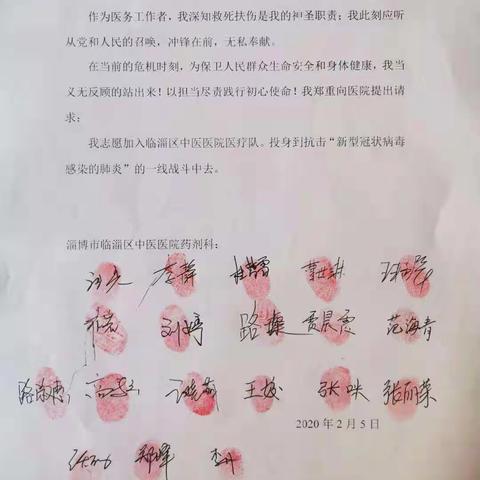 作为医务工作者，我深知救死扶伤是我的神圣职责；我此刻应听
从党和人民的召唤，冲锋在前，无私奉献。
在当前的危机时刻，为保卫人民群众生命安全和身体健康，我当
义无反顾的站出来！以担当尽责践行初心使命！我郑重向医院提出请
求：
我志愿加入临淄区中医医院医疗队。投身到抗击“新型冠状病毒
感染的肺炎”的一线战斗中去。
淄博市临淄区中医医院药剂科：
李静
刘婷 路 贾晨霞 范海青
王 张 张丽荣
2020 年 2 月 5 日
郑峰